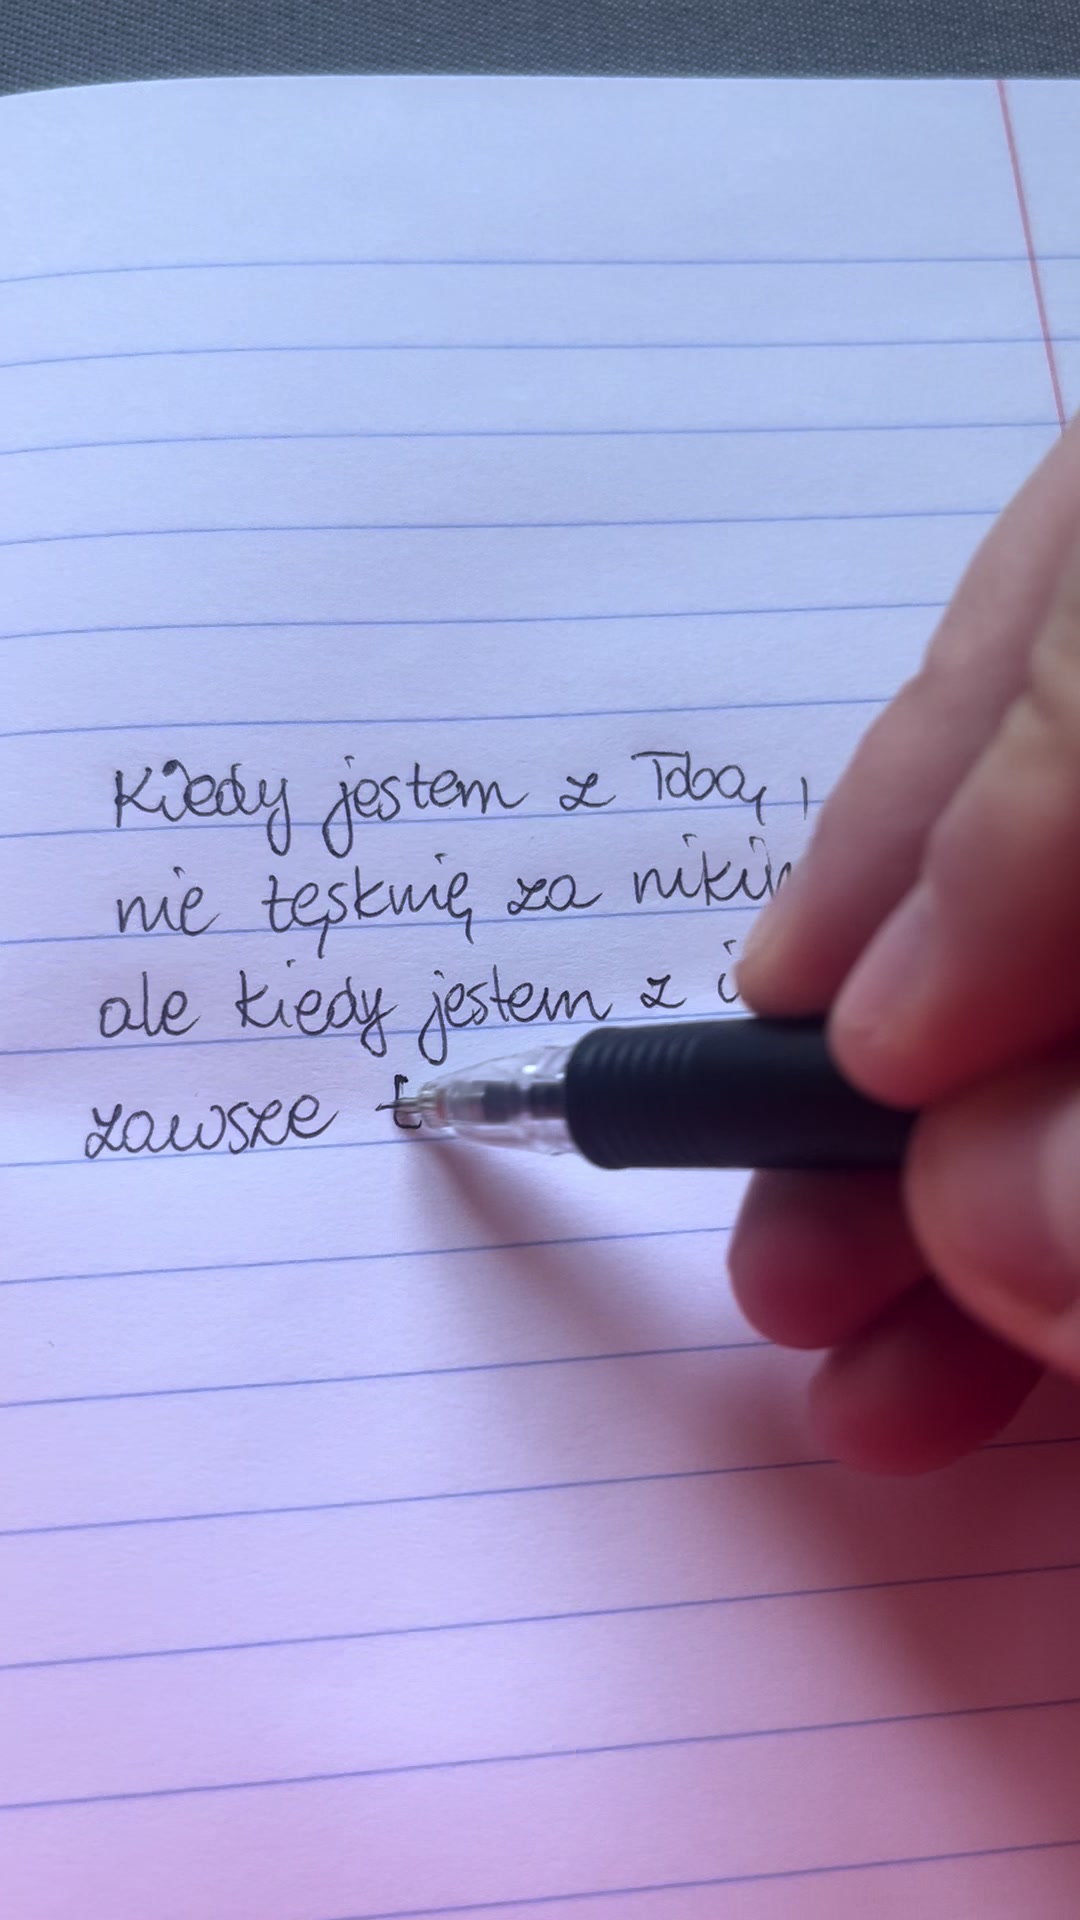 Kiedy jestem z Tobą,
nie tęsknię za
ale kiedy jestem z
zawsze